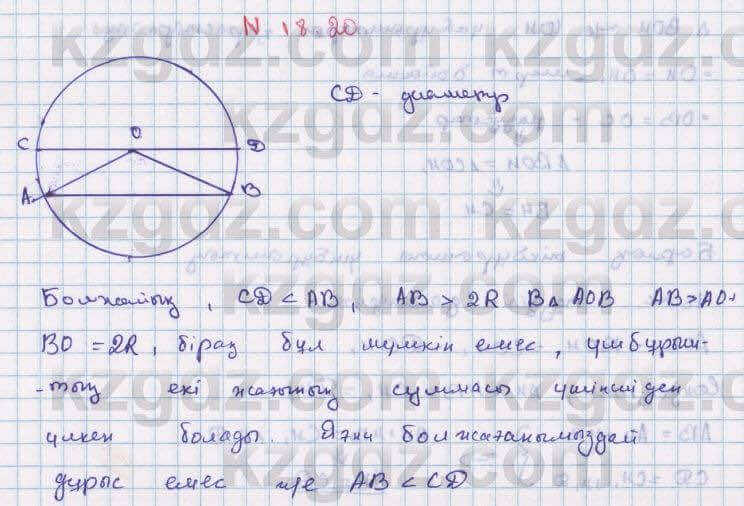 N 18.20
CD - диаметр
C O D
A B
Болжайық, CD < AB, AB > 2R В△ AOB AB > AO+
BO = 2R, бірақ бұл мүмкін емес, үшбұрыш-
-тың екі жағының суммасы үшіншіден
үлкен болады. Яғни болжағанымыздай
дұрыс емес AB < CD
kzgdz.com